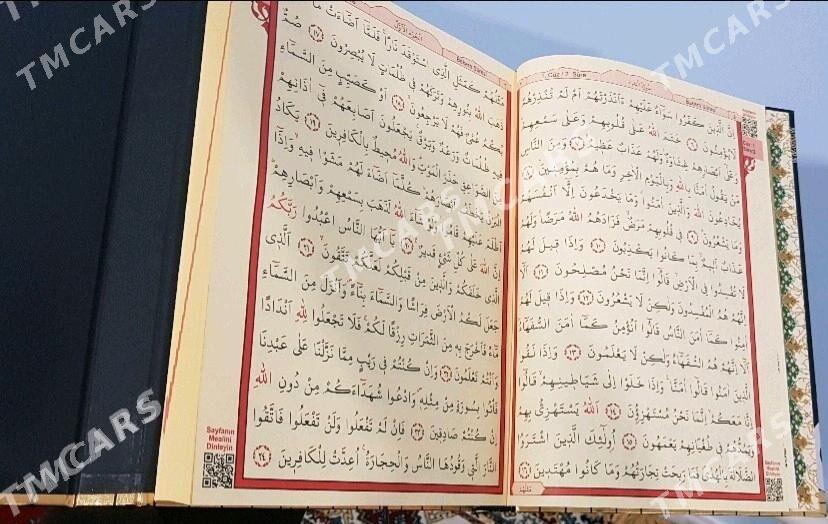 1. Cüz / 2. Sûre
Bakara Sûresi
اِنَّ الَّذٖينَ كَفَرُوا سَوَٓاءٌ عَلَيْهِمْ ءَاَنْذَرْتَهُمْ اَمْ لَمْ تُنْذِرْهُمْ
لَا يُؤْمِنُونَ ﴿٦﴾ خَتَمَ اللّٰهُ عَلٰى قُلُوبِهِمْ وَعَلٰى سَمْعِهِمْ
وَعَلٰٓى اَبْصَارِهِمْ غِشَاوَةٌ وَلَهُمْ عَذَابٌ عَظٖيمٌ ﴿٧﴾ وَمِنَ النَّاسِ
مَنْ يَقُولُ اٰمَنَّا بِاللّٰهِ وَبِالْيَوْمِ الْاٰخِرِ وَمَا هُمْ بِمُؤْمِنٖينَ ﴿٨﴾
يُخَادِعُونَ اللّٰهَ وَالَّذٖينَ اٰمَنُوا وَمَا يَخْدَعُونَ اِلَّٓا اَنْفُسَهُمْ
وَمَا يَشْعُرُونَ ﴿٩﴾ فٖي قُلُوبِهِمْ مَرَضٌ فَزَادَهُمُ اللّٰهُ مَرَضًا وَلَهُمْ
عَذَابٌ اَلٖيمٌ بِمَا كَانُوا يَكْذِبُونَ ﴿١٠﴾ وَاِذَا قٖيلَ لَهُمْ
لَا تُفْسِدُوا فِي الْاَرْضِ قَالُٓوا اِنَّمَا نَحْنُ مُصْلِحُونَ ﴿١١﴾ اَلَٓا
اِنَّهُمْ هُمُ الْمُفْسِدُونَ وَلٰكِنْ لَا يَشْعُرُونَ ﴿١٢﴾ وَاِذَا قٖيلَ لَهُمْ
اٰمِنُوا كَمَٓا اٰمَنَ النَّاسُ قَالُٓوا اَنُؤْمِنُ كَمَٓا اٰمَنَ السُّفَهَٓاءُ
اَلَٓا اِنَّهُمْ هُمُ السُّفَهَٓاءُ وَلٰكِنْ لَا يَعْلَمُونَ ﴿١٣﴾ وَاِذَا لَقُوا
الَّذٖينَ اٰمَنُوا قَالُٓوا اٰمَنَّا وَاِذَا خَلَوْا اِلٰى شَيَاطٖينِهِمْ قَالُٓوا
اِنَّا مَعَكُمْ اِنَّمَا نَحْنُ مُسْتَهْزِؤُنَ ﴿١٤﴾ اَللّٰهُ يَسْتَهْزِئُ بِهِمْ
وَيَمُدُّهُمْ فٖي طُغْيَانِهِمْ يَعْمَهُونَ ﴿١٥﴾ اُولٰٓئِكَ الَّذٖينَ اشْتَرَوُا
الضَّلَالَةَ بِالْهُدٰى فَمَا رَبِحَتْ تِجَارَتُهُمْ وَمَا كَانُوا مُهْتَدٖينَ ﴿١٦﴾
مَثَلُهُمْ
Bakara Sûresi
مَثَلُهُمْ كَمَثَلِ الَّذِي اسْتَوْقَدَ نَارًا فَلَمَّٓا اَضَٓاءَتْ مَا
ذَهَبَ اللّٰهُ بِنُورِهِمْ وَتَرَكَهُمْ فٖي ظُلُمَاتٍ لَا يُبْصِرُونَ ﴿١٧﴾ صُمٌّ
بُكْمٌ عُمْيٌ فَهُمْ لَا يَرْجِعُونَ ﴿١٨﴾ اَوْ كَصَيِّبٍ مِنَ السَّمَٓاءِ
فٖيهِ ظُلُمَاتٌ وَرَعْدٌ وَبَرْقٌ يَجْعَلُونَ اَصَابِعَهُمْ فٖٓي اٰذَانِهِمْ
مِنَ الصَّوَاعِقِ حَذَرَ الْمَوْتِ وَاللّٰهُ مُحٖيطٌ بِالْكَافِرٖينَ ﴿١٩﴾ يَكَادُ
الْبَرْقُ يَخْطَفُ اَبْصَارَهُمْ كُلَّمَٓا اَضَٓاءَ لَهُمْ مَشَوْا فٖيهِ وَاِذَٓا
اَظْلَمَ عَلَيْهِمْ قَامُوا وَلَوْ شَٓاءَ اللّٰهُ لَذَهَبَ بِسَمْعِهِمْ وَاَبْصَارِهِمْ
اِنَّ اللّٰهَ عَلٰى كُلِّ شَيْءٍ قَدٖيرٌ ﴿٢٠﴾ يَٓا اَيُّهَا النَّاسُ اعْبُدُوا رَبَّكُمُ
الَّذٖي خَلَقَكُمْ وَالَّذٖينَ مِنْ قَبْلِكُمْ لَعَلَّكُمْ تَتَّقُونَ ﴿٢١﴾ اَلَّذٖي
جَعَلَ لَكُمُ الْاَرْضَ فِرَاشًا وَالسَّمَٓاءَ بِنَٓاءً وَاَنْزَلَ مِنَ السَّمَٓاءِ
مَٓاءً فَاَخْرَجَ بِهٖ مِنَ الثَّمَرَاتِ رِزْقًا لَكُمْ فَلَا تَجْعَلُوا لِلّٰهِ اَنْدَادًا
وَاَنْتُمْ تَعْلَمُونَ ﴿٢٢﴾ وَاِنْ كُنْتُمْ فٖي رَيْبٍ مِمَّا نَزَّلْنَا عَلٰى عَبْدِنَا
فَأْتُوا بِسُورَةٍ مِنْ مِثْلِهٖ وَادْعُوا شُهَدَٓاءَكُمْ مِنْ دُونِ اللّٰهِ
اِنْ كُنْتُمْ صَادِقٖينَ ﴿٢٣﴾ فَاِنْ لَمْ تَفْعَلُوا وَلَنْ تَفْعَلُوا فَاتَّقُوا
النَّارَ الَّتٖي وَقُودُهَا النَّاسُ وَالْحِجَارَةُ اُعِدَّتْ لِلْكَافِرٖينَ ﴿٢٤﴾
Sayfanın
Mealini
Dinleyin
TMCARS
TMCARS
TMCARS
TMCARS
TMCARS
TMCARS
TMCARS
TMCARS